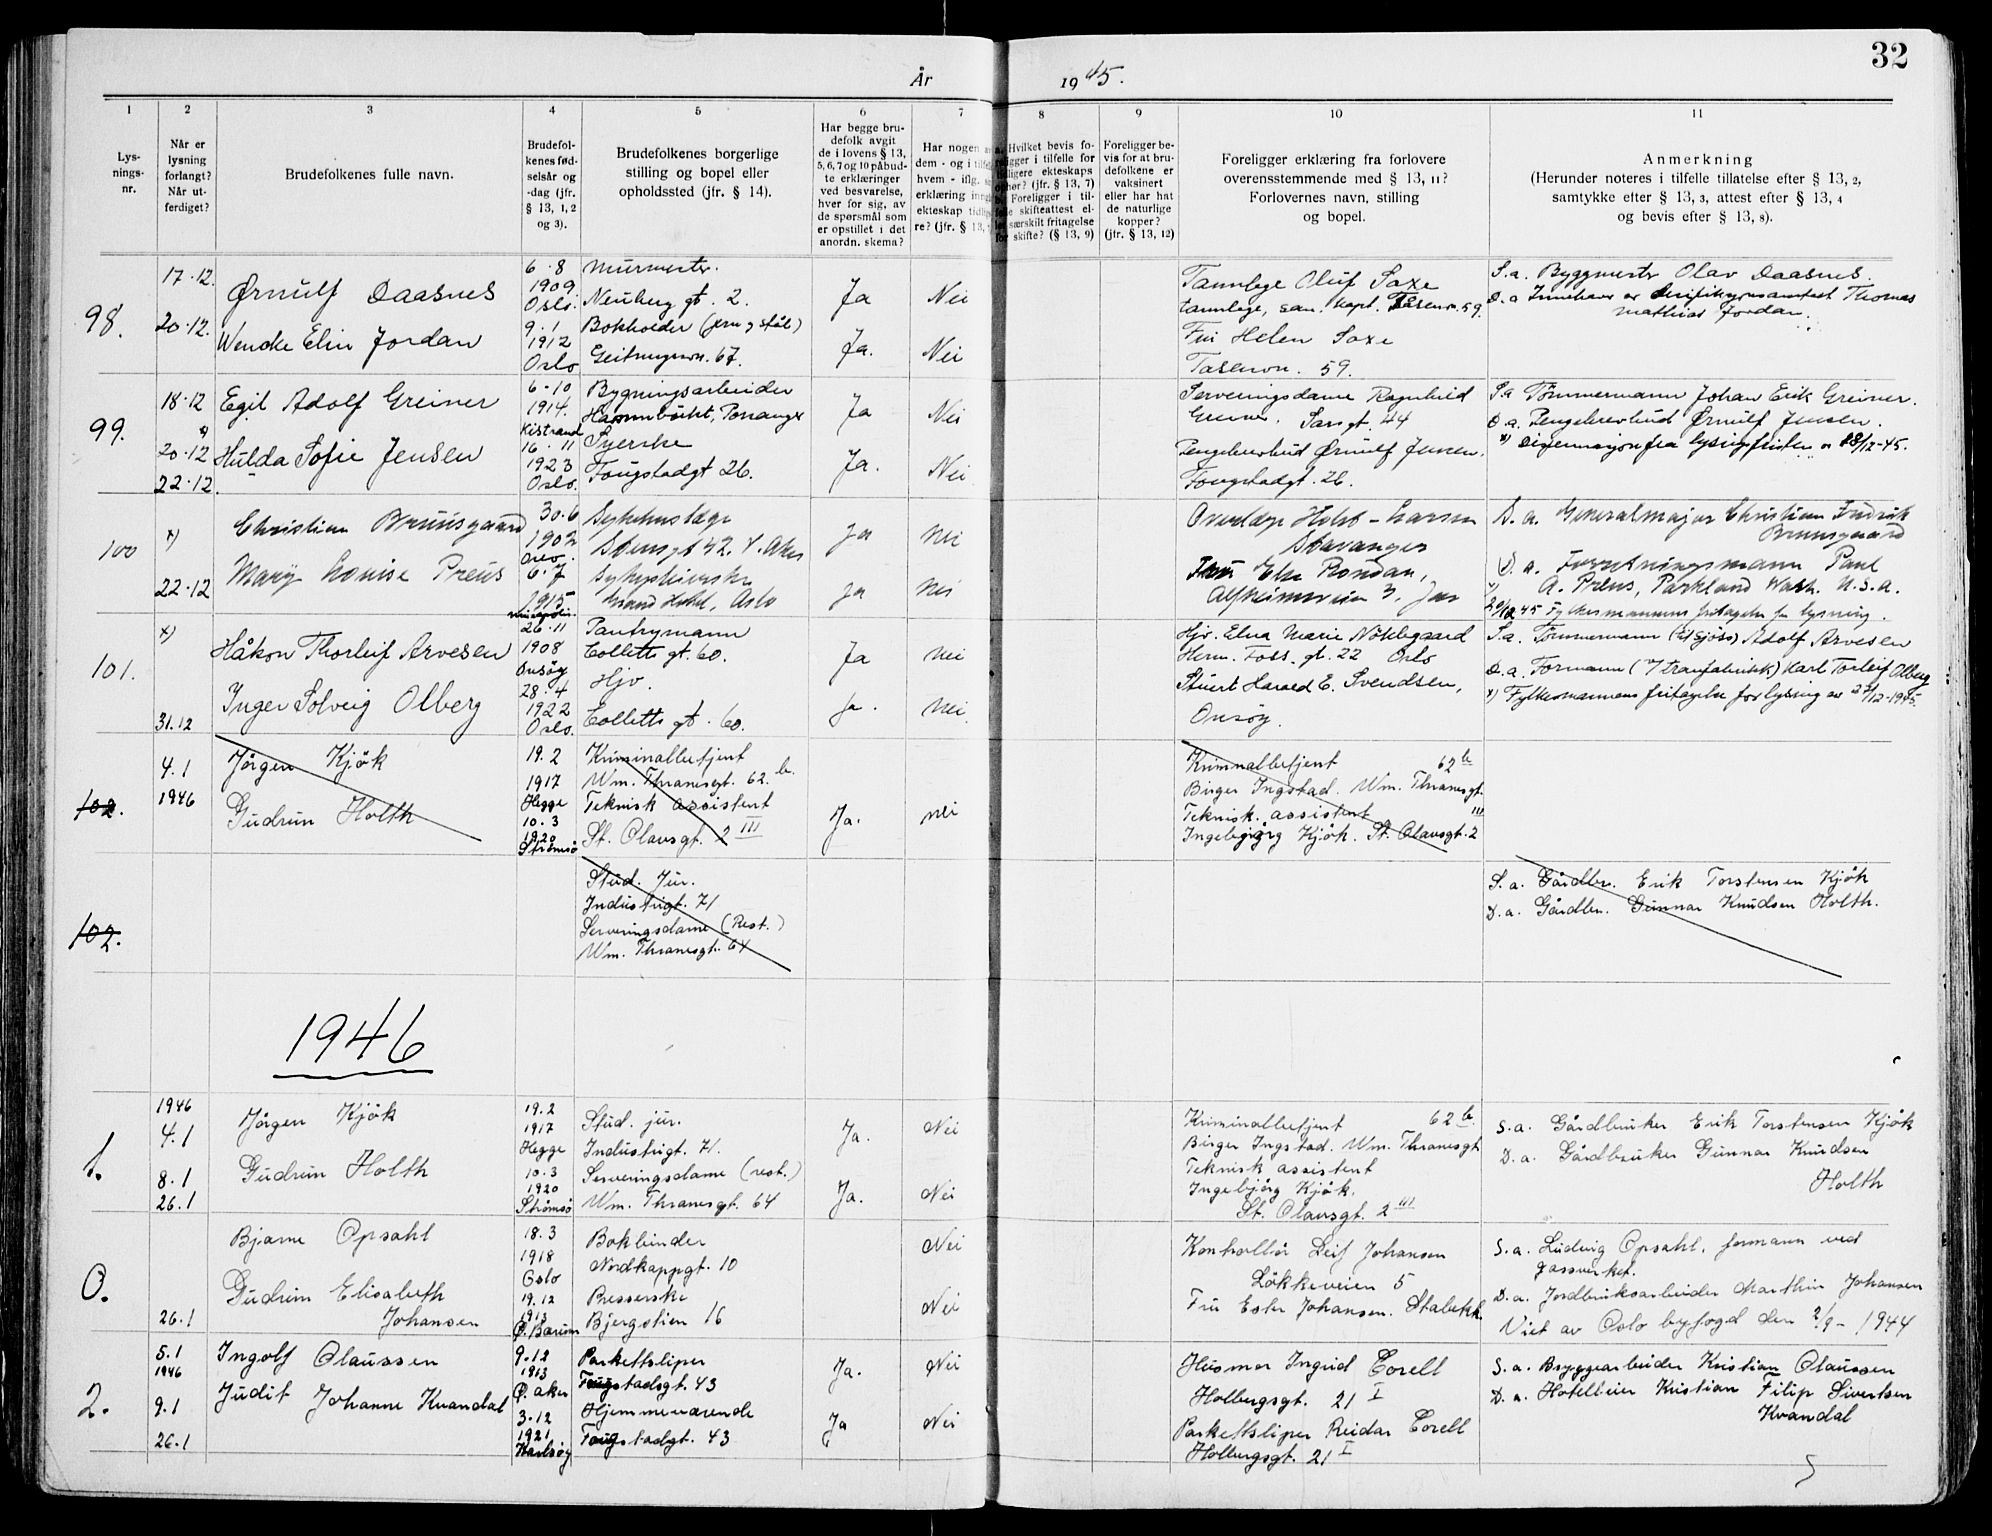 32
År 1945.
1 2 3 4 5 6 7 8 9 10 11
Lys-
nings-
nr.
Når er
lysning
forlangt?
Når ut-
ferdiget?
Brudefolkenes fulle navn.
Brudefol-
kenes fød-
selsår og
-dag (jfr.
§ 13, 1, 2
og 3).
Brudefolkenes borgerlige
stilling og bopel eller
opholdssted (jfr. § 14).
Har begge bru-
defolk avgit
de i lovens § 13,
5, 6, 7 og 10 påbud-
te erklæringer
ved besvarelse,
hver for sig, av
de spørsmål som
er opstillet i det
anordn. skema?
Har nogen
dem - og i
hvem - iflg.
erklæring
ekteskap
re? (jfr. § 13,
Hvilket bevis fo-
religger i tilfelle for
tidligere ekteskaps
ophør? (jfr. § 13, 7)
Foreligger i til-
felle skifteattest el-
ler særskilt fritagelse
for skifte? (§ 13, 9)
Foreligger be-
vis for at bru-
defolkene er
vaksinert
eller har hat
de naturlige
kopper?
(jfr. § 13, 12)
Foreligger erklæring fra forlovere
overensstemmende med § 13, 11?
Forlovernes navn, stilling
og bopel.
Anmerkning
(Herunder noteres i tilfelle tillatelse efter § 13, 2,
samtykke efter § 13, 3, attest efter § 13, 4
og bevis efter § 13, 8).
98.
17.12.
20.12.
Ørnulf Daasnes
Wencke Elin Jordan
6.8
1909
Oslo.
9.1
1912
Oslo
Murmester.
Neuberg gt. 2.
Bokholder (jern og stål)
67.
Ja
Ja.
Nei
Nei
Tannlege Oluf Saxe
tannlege, san. kapt. Tåsenvn. 59.
Fru Helen Saxe
Tåsenvn. 59.
S.a. Byggmester Olav Daasnes.
D.a Innehaver av Thomas
Mathias Jordan.
99.
18.12
x)
20.12
22.12.
Egil Adolf Greiner
Hulda Sofie Jensen
6-10
1914.
Kistrand
16-11
1923
Oslo.
Bygningsarbeider
Hamnbukt, Porsanger
Syerske
Fougstadgt 26.
Ja
Ja.
Nei
Nei
Serveringsdame Ragnhild
Greiner, Sarsgt. 44
Pengebrevbud Ørnulf Jensen.
Fougstadgt. 26.
S.a Tømmermann Johan Erik Greiner.
D.a. Pengebrevbud Ørnulf Jensen.
x) Dispensasjon fra lysingsfristen av 18/12-45.
100
x)
22.12
Christian Brunsgaard
Mary Louise Preus
30.6
1902
Oslo.
6.7
1915
Sykehuslæge
Stensgt 42. V. Aker
Sykepleierske
Grand Hotel, Oslo
Ja
Ja
Nei
Nei
Overlæge Holst-Larsen
Stavanger
Fru Else Rondan,
S.a. Generalmajor Christian Fredrik
Brunsgaard
D.a. Forretningsmann Paul
A. Preus, Parkland Wash. U.S.A.
x) 20/12 45 Fylkesmannens fritagelse for lysning.
101.
x)
31.12
Håkon Thorleif Arvesen
Inger Solveig Olberg
26.11
1908
Onsøy
28.4
1922
Oslo.
Pantrymann
Colletts gt. 60.
Hjv.
Colletts gt. 60.
Ja
Ja.
Nei
Nei
Hjv. Elna Marie Nøklegaard
Herm. Foss. gt. 22 Oslo
Stuert Harald E. Svendsen,
Onsøy.
S.a. Tømmermann (til sjøs) Adolf Arvesen
D.a. Formann (i tranfabrikk) Karl Torleif Olberg
x) Fylkesmannens fritagelse for lysing av 27/12-1945.
102.
4.1
1946
Jørgen Kjøk
Gudrun Holth
19.2
1917
Hegge
10.3
1920
Strømsø
Kriminalbetjent
Wm. Thranesgt. 62.b.
Teknisk assistent
St. Olavsgt. 2 III
Ja.
Nei
Kriminalbetjent 62 b
Birger Ingstad. Wm. Thranesgt.
Teknisk. assistent III
Ingebjørg Kjøk. St. Olavsgt. 2
102.
Stud. Jur.
Industrigt. 71
Serveringsdame (Rest.)
Wm. Thranesgt. 64
S.a. Gårdbr. Erik Torstensen Kjøk
D.a. Gårdbr. Gunnar Knudsen Holth.
1946
1.
1946
4.1
8.1
26.1
Jørgen Kjøk
Gudrun Holth
19.2
1917
Hegge
10.3
1920
Strømsø
Stud. jur.
Industrigt. 71.
Serveringsdame (rest.)
Wm. Thranesgt. 64
Ja.
Ja.
Nei
Nei
Kriminalbetjent 62 b.
Birger Ingstad. Wm. Thranesgt
Teknisk assistent
Ingebjørg Kjøk.
St. Olavsgt. 2 III
S.a. Gårdbruker Erik Torstensen Kjøk
D.a. Gårdbruker Gunnar Knudsen
Holth
0.
26.1
Bjarne Opsahl
Gudrun Elisabeth
Johansen
18.3
1918
Oslo
19.12
1913
Ø. Bærum
Bokbinder
Nordkappgt. 10
Presserske
Bjergstien 16
Nei
Nei
Kontrollør Leif Johansen
Løkkeveien 5
Fru Ester Johansen. Stabekk.
S.a. Ludvig Opsahl, formann ved
gassverket.
D.a. Jordbruksarbeider Marthin Johansen
Viet av Oslo byfogd den 2/9-1944
2.
5.1
1946
9.1
26.1
Ingolf Olaussen
Judit Johanne Kvandal
9.12
1913
Ø. Aker
3.12
1921
Karlsøy
Parkettsliper
Fougstadsgt. 43
Hjemmeværende
Fougstadgt. 43
Ja.
Ja
Nei
Nei
Husmor Ingrid Corell
Holbergsgt. 21 I
Parkettsliper Reidar Corell
Holbergsgt. 21 I
S.a. Bryggearbeider Kristian Olaussen
D.a. Hotelleier Kristian Filip Sivertsen
Kvandal